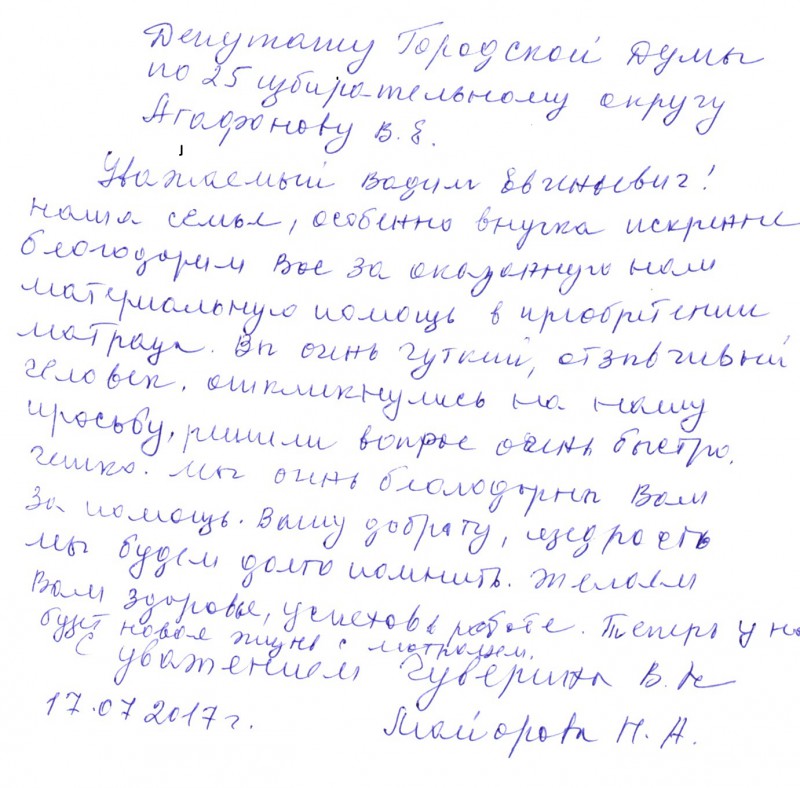 Депутату Городской Думы
по 25 избирательному округу
Агафонову В.Е.
Уважаемый Вадим Евгеньевич!
наша семья, особенно внучка искренне
благодарим Вас за оказанную нам
материальную помощь в приобретении
матраца. Вы очень чуткий, отзывчивый
человек. откликнулись на нашу
просьбу, решили вопрос очень быстро,
четко. мы очень благодарны Вам
за помощь. Вашу доброту, щедрость
мы будем долго помнить. Желаем
Вам здоровья, успехов в работе. Теперь у на
будет новая жизнь с матрацем.
С уважением Чуверина В.К
17.07 2017г. Майорова Н.А.